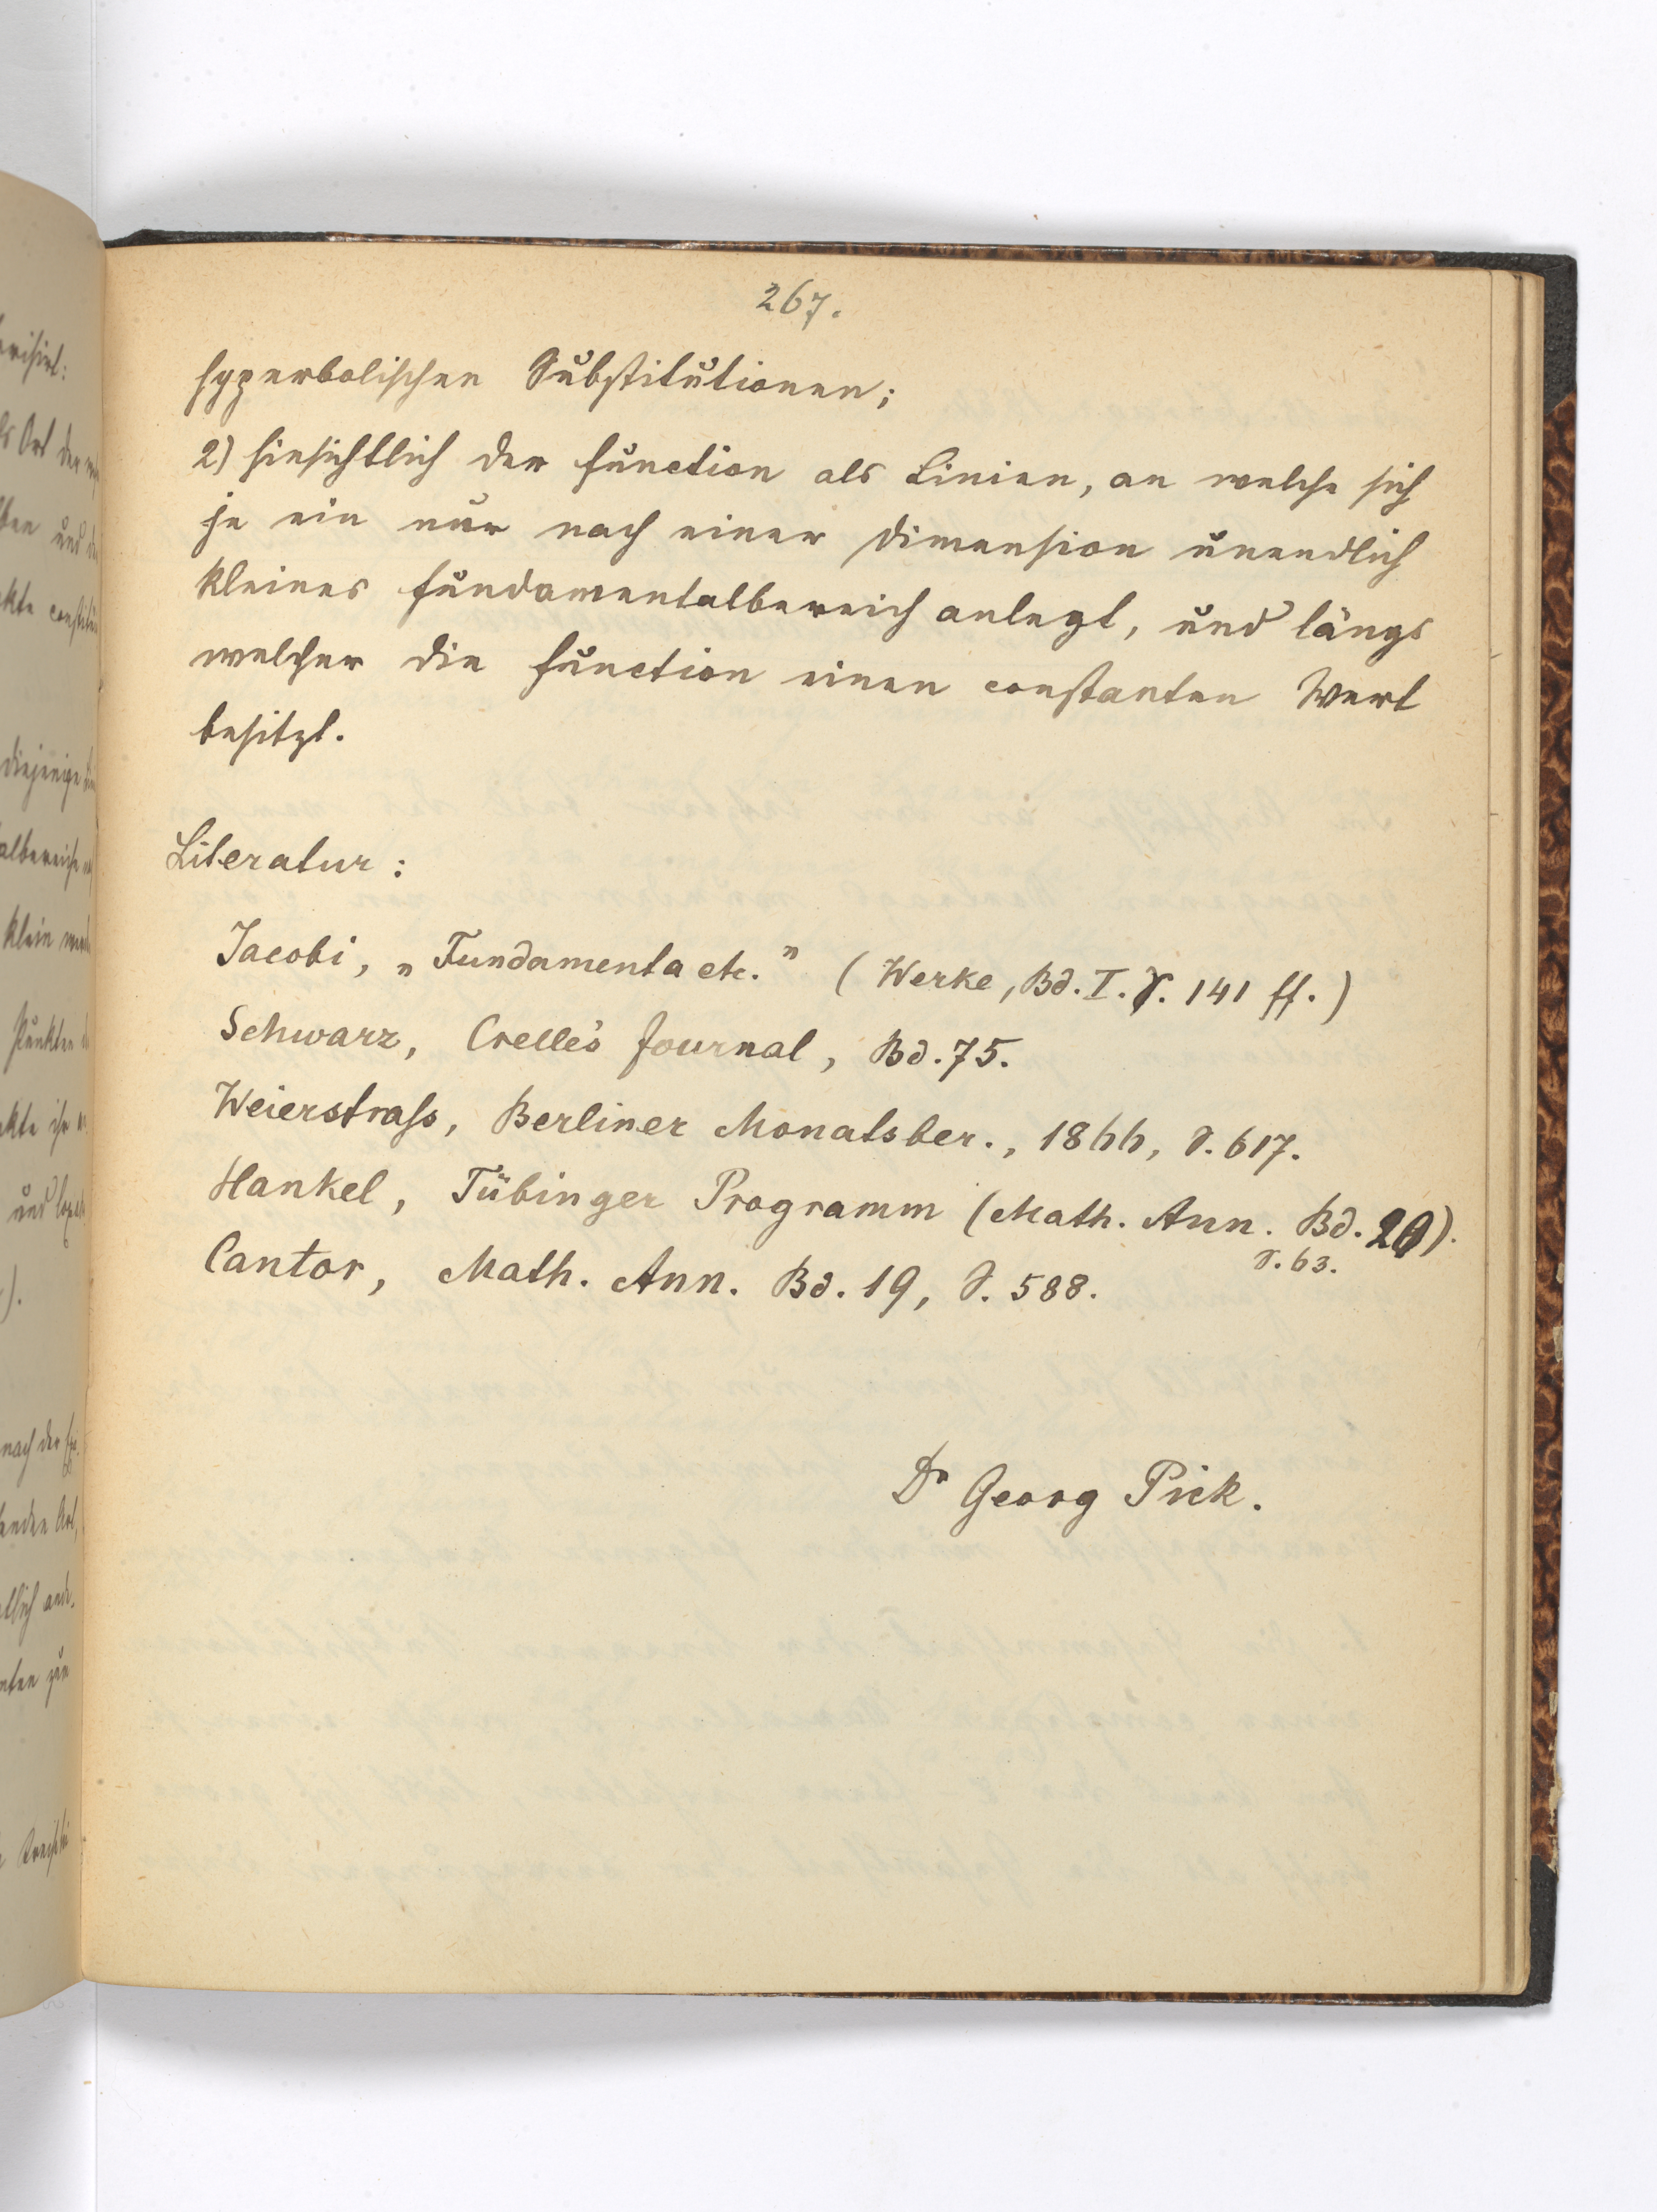 267.
hyperbolischen Substitutionen;
2) hinsichtlich der Function als Linien, an welche sich
je ein nur nach einer Dimension unendlich
kleines Fundamentalbereich anlegt, und längs
welcher die Function einen constanten Wert
besitzt.
Literatur:
Jacobi, „Fundamenta etc." (Werke, Bd. I. S. 141 ff.)
Schwarz, Crelle's Journal, Bd. 75.
Weierstraſs, Berliner Monatsber., 1866, S. 617.
Hankel, Tübinger Programm (Math. Ann. Bd. 20).
S. 63.
Cantor, Math. Ann. Bd. 19, S. 588.
Dr Georg Pick.